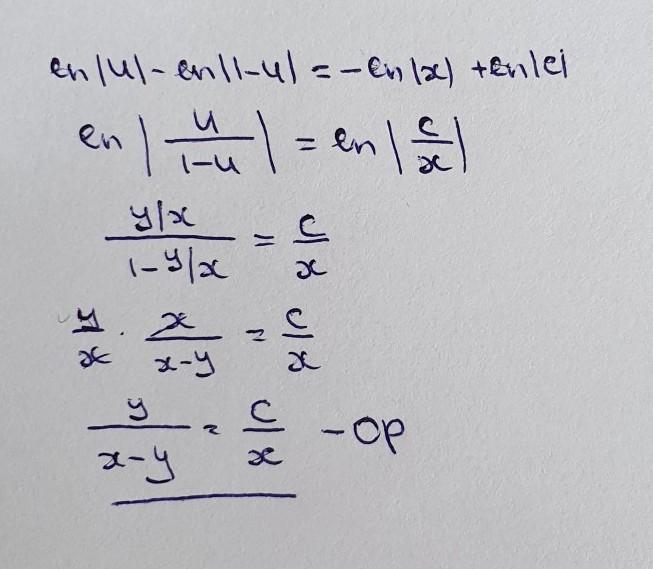 ln|u| - ln|1-u| = -ln|x| + ln|c|
ln | u/(1-u) | = ln | c/x |
(y/x)/(1-y/x) = c/x
y/x · x/(x-y) = c/x
y/(x-y) = c/x - op